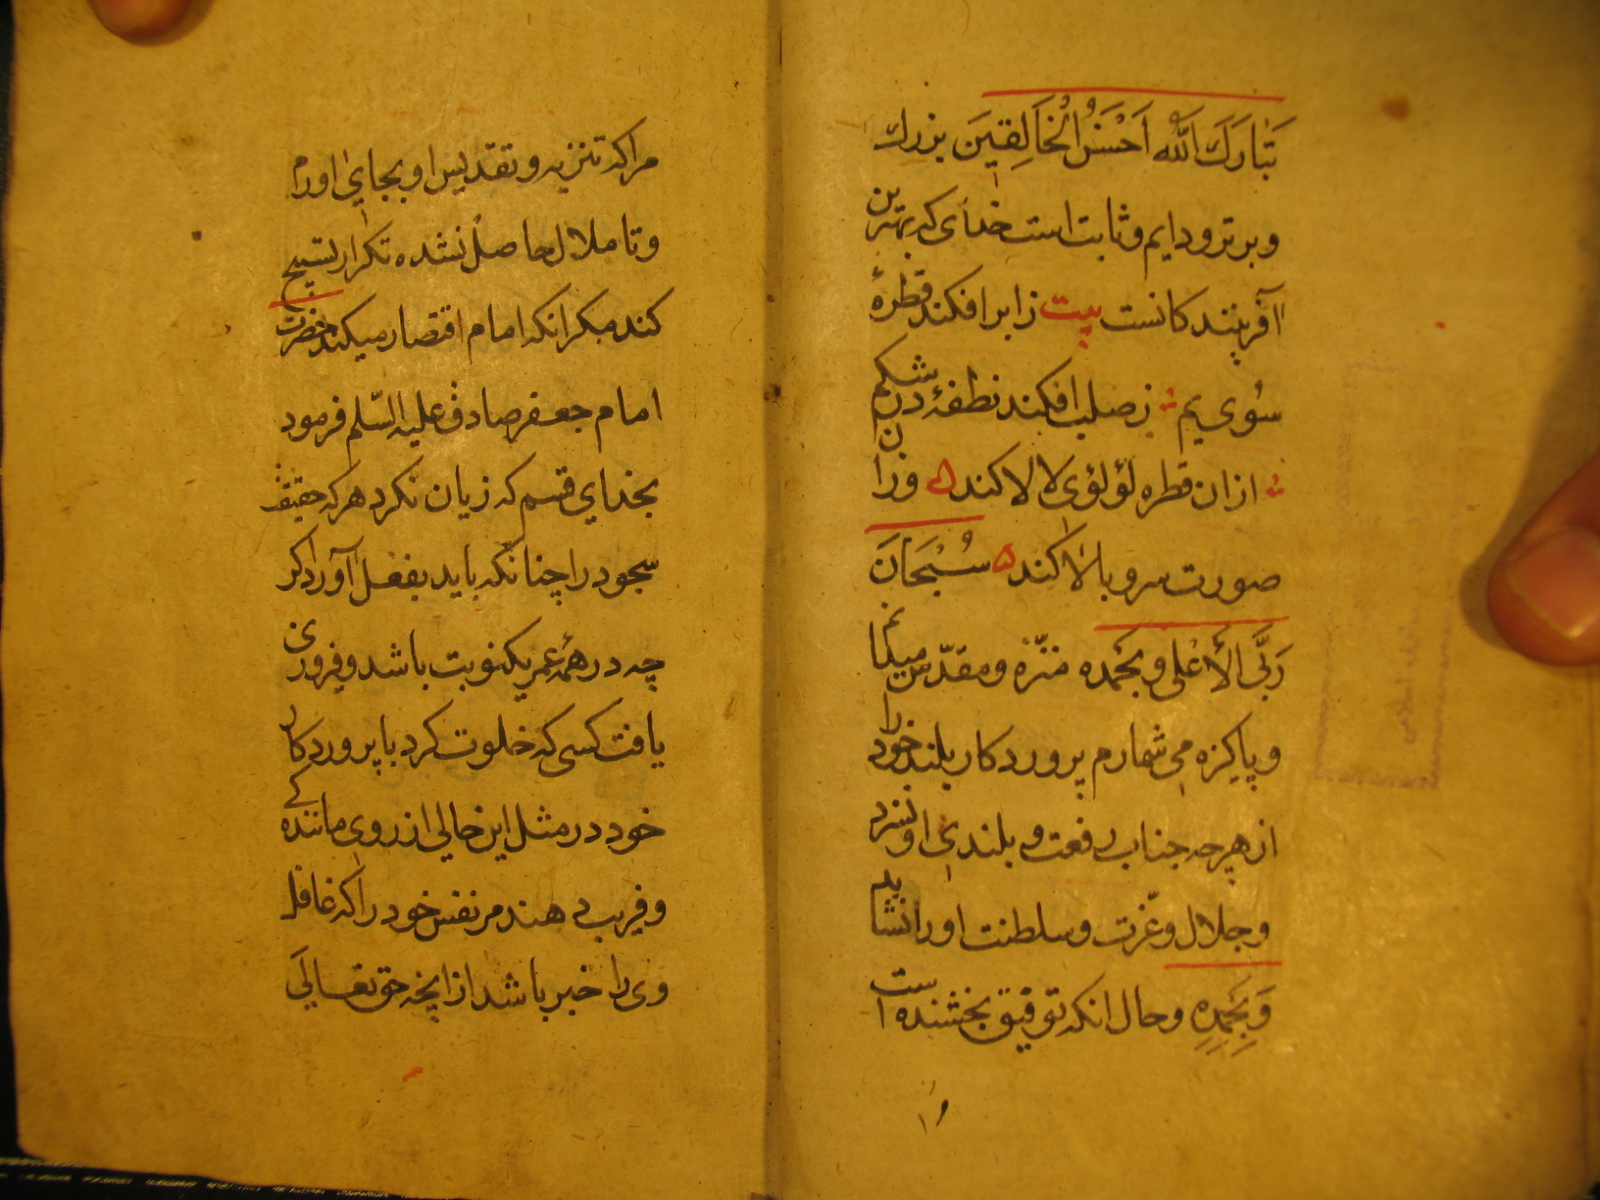 تَبارَکَ اللّهُ اَحْسَنُ الْخَالِقینَ بزرك
و برتر و دایم و ثابت است خدای که بهترین
آفرینند کانست بیت ز ابر افکند قطرهٔ
سوی یم ز صلب افکند نطفهٔ در شکم
ازان قطره لؤلؤی لالا کند وزان
صورت سرو بالا کند سُبْحَانَ
رَبَّی الاَعْلی و بحَمده منزّه و مقدّس میدانم
و پاکیزه می شمارم پروردکار بلند خود را
از هرچه جناب رفعت و بلندی او نسزد
و جلال و عزّت و سلطنت او را نشاید
وَ بِحَمِدِهِ و حال انکه توفیق بخشنده است
مرا که تنزیه و تقدیس او بجای اورم
و تا ملال حاصل نشده تکرار تسبیح
کند مکر انکه امام اقتصار میکند حضرت
امام جعفر صادق علیه السّلم فرمود
بخدای قسم که زیان نکرد هر که حقیقت
سجود را چنانکه باید بفعل آورد اکر
چه در همهٔ عمر یکنوبت باشد و فیروزی
یافت کسی که خلوت کرد با پروردکار
خود در مثل این حالی از روی مانندهٔ کے
و فریب دهند مر نفس خود را که غافل
وی را خبر باشد از انچه حق تعالی